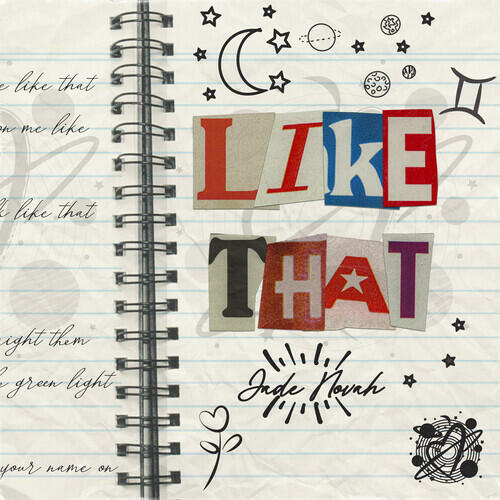 like that
on me like
like that
right them
green light
your name on
LIKE
THAT
Jade Novah